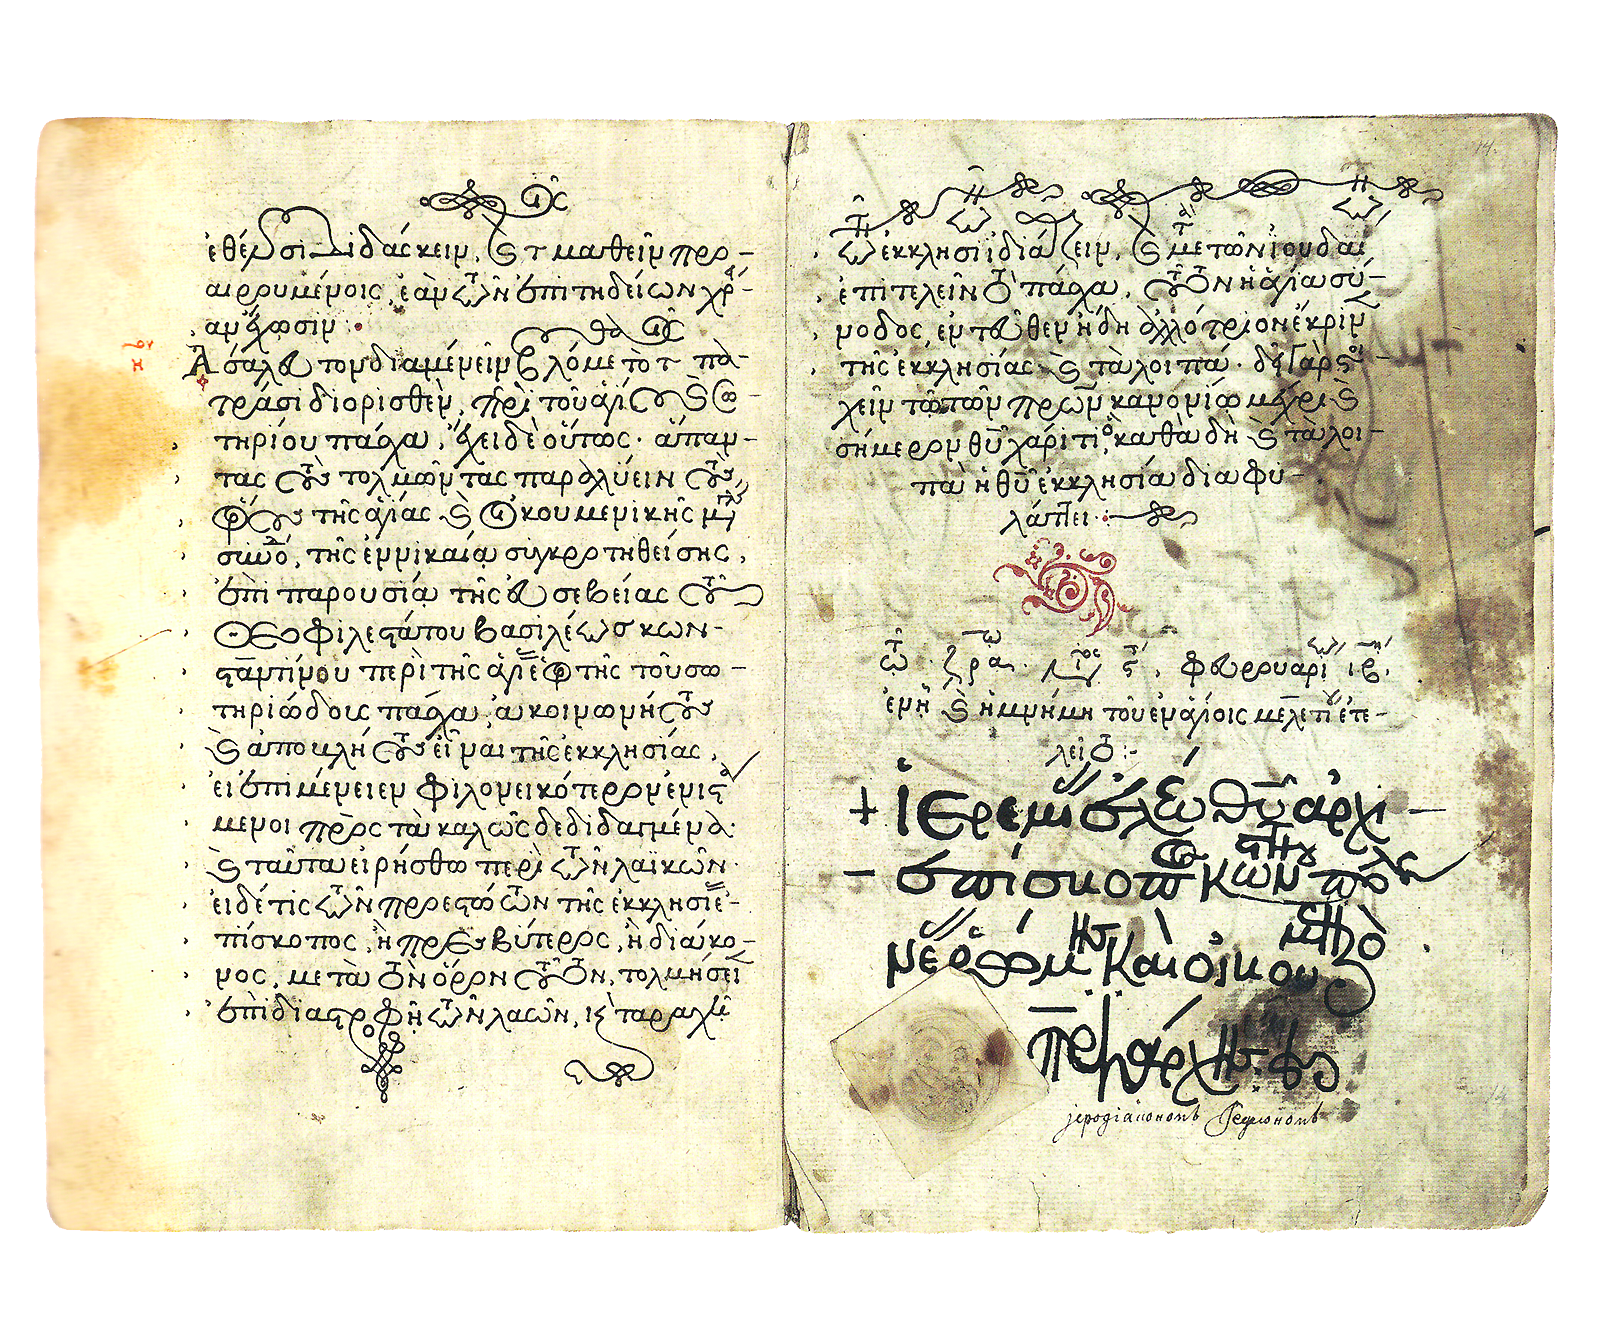 τοῖς
ἐθέλουσι διδάσκειν, καὶ τ μαθεῖν προ-
αιρουμένοις, ἐὰν τῶν ἐπιτηδείων χρεί-
αν ἔχωσιν :
η Ἀσάλευτον διαμένειν βουλόμεθα τὸ τοῖς πα-
τράσι διορισθὲν, περὶ τοῦ ἁγίου καὶ σω-
τηρίου πάσχα, ἔχει δὲ οὕτως· ἅπαν-
τας τοὺς τολμῶντας παραλύειν τοὺς
ὅρους τῆς ἁγίας καὶ οἰκουμενικῆς μεγάλης
συνόδου, τῆς ἐν νικαίᾳ συγκροτηθείσης,
ἐπὶ παρουσίᾳ τῆς εὐσεβείας τοῦ
θεοφιλεστάτου βασιλέως κων-
σταντίνου περὶ τῆς ἁγίας ἑορτῆς τοῦ σω-
τηριώδους πάσχα, ἀκοινωνήτους
καὶ ἀποβλήτους εἶναι τῆς ἐκκλησίας,
εἰ ἐπιμένειεν φιλονεικότερον ἐνιστά
μενοι πρὸς τὰ καλῶς δεδιδαγμένα·
καὶ ταῦτα εἰρήσθω περὶ τῶν λαϊκῶν·
εἰ δέ τις τῶν προεστώτων τῆς ἐκκλησίας ἐ-
πίσκοπος, ἢ πρεσβύτερος, ἢ διάκο-
νος, μετὰ τὸν ὅρον τοῦτον, τολμήσει
ἐπὶ διαστροφῇ τῶν λαῶν, καὶ ταραχῇ
τῶν ἐκκλησιῶν ἰδιάζειν, καὶ μετὰ τῶν ἰουδαίων
ἐπιτελεῖν τὸ πάσχα, τοῦτον ἡ ἁγία σύ-
νοδος, ἐντεῦθεν ἤδη ἀλλότριον ἔκρινε
τῆς ἐκκλησίας καὶ τὰ λοιπά· δεῖ γὰρ στοι-
χεῖν τῷ τῶν πατέρων κανονίῳ μέχρι καὶ
σήμερον θυ χάριτι, καθὰ δὴ καὶ τὰ λοι-
πὰ ἡ θυ ἐκκλησία διαφυ-
λάττει :
φευρουαρίῳ ιβ,
ἐν ᾗ καὶ ἡ μνήμη τοῦ ἐν ἁγίοις μελετίου ἐπε-
λεῖτο :-
+ ἱερεμίας ἐλέῳ θυ ἀρχι-
- επίσκοπος κωνσταντινουπόλεως
νέας ῥώμης καὶ οἰκουμενικὸς
πατριάρχης
14.